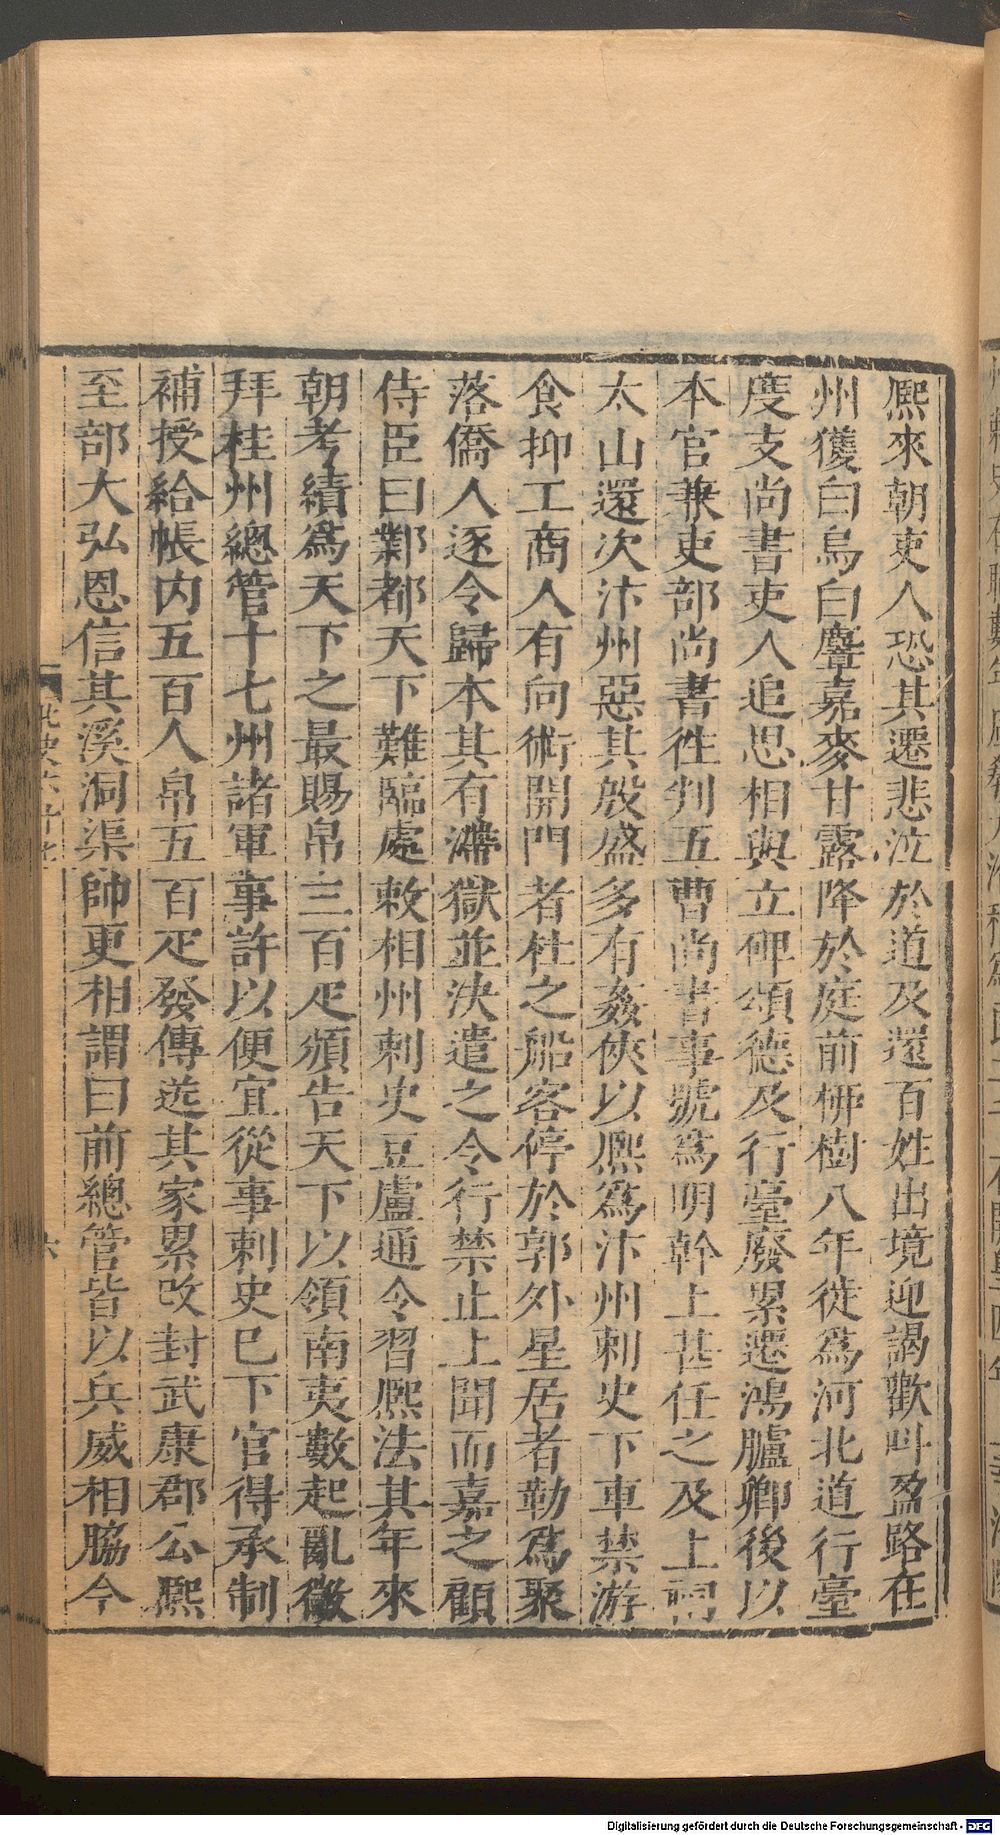 熈來朝吏人恐其遷悲泣於道及還百姓出境迎謁歡叫盈路在
州獲白烏白麞嘉麥甘露降於庭前栁樹八年徙爲河北道行臺
度支尚書吏人追思相與立碑頌德及行臺廢累遷鴻臚卿後以
本官兼吏部尚書徃判五曹尚書事號爲明幹上甚任之及上祠
太山還次汴州惡其殷盛多有姦俠以熈爲汴州刺史下車禁游
食抑工商人有向術開門者杜之船客停於郭外星居者勒爲聚
落僑人逐令歸本其有滯獄並決遣之令行禁止上聞而嘉之顧
侍臣曰鄴都天下難臨處敕相州刺史豆盧通令習熈法其年來
朝考績爲天下之最賜帛三百疋頒告天下以領南夷數起亂徵
拜桂州總管十七州諸軍事許以便宜從事刺史巳下官得承制
補授給帳内五百人帛五百疋發傳送其家累改封武康郡公熈
至部大弘恩信其溪洞渠帥更相謂曰前總管皆以兵威相脇今
北史六十七
六
Digitalisierung gefördert durch die Deutsche Forschungsgemeinschaft - DFG